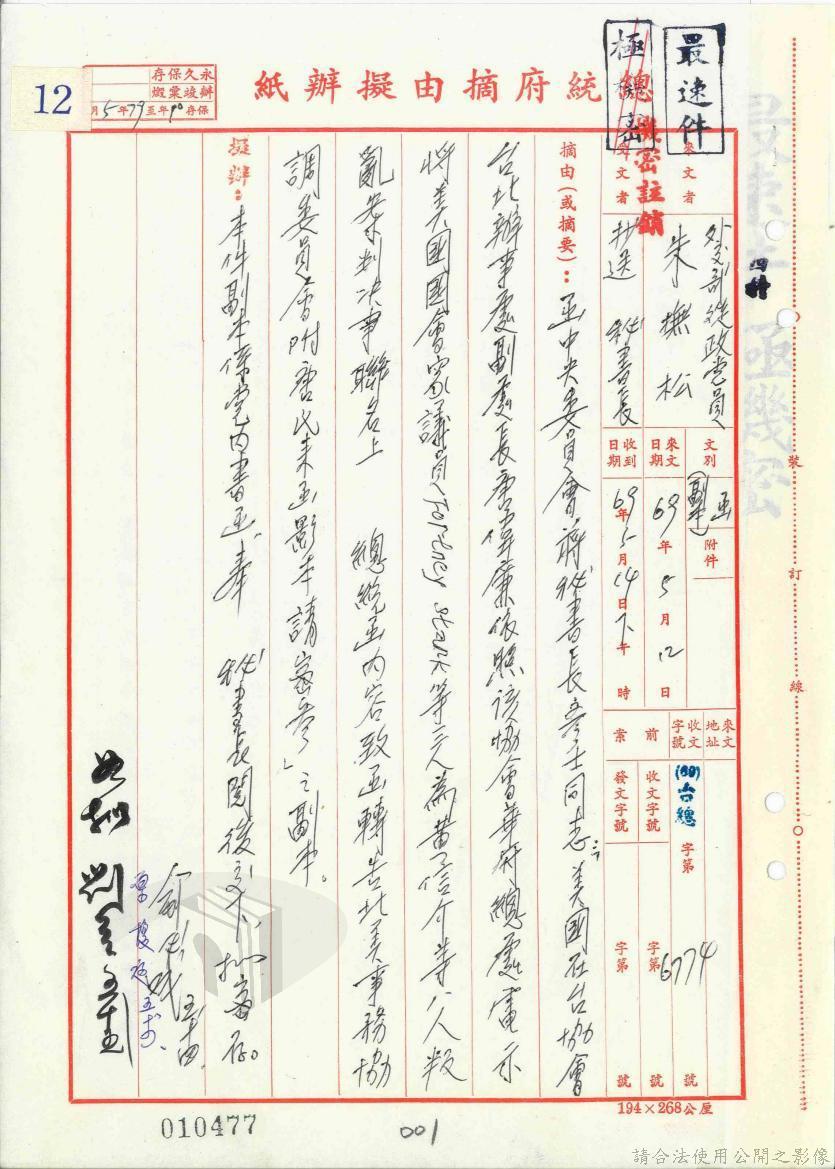 最速件
極機密
總統府摘由擬辦紙
機密註銷
永久保存
辦竣彙繳
保存 年至79年5月
12
來文者
外交部從政黨員
朱撫松
受文者
抄送 秘書長
文別
函
副本
附件
來文日期
69年5月12日
收到日期
69年5月14日下午 時
來文地址
收文字號
(69)台總
字第
6774
號
前案
收文字號
字第 號
發文字號
字第 號
摘由(或摘要):
函中央委員會蔣秘書長彥士同志:「美國在台協會
台北辦事處副處長唐偉廉依照該協會華府總處電示
將美國國會眾議員Fortney Stark等三人為黃信介等八人叛
亂案判決事聯名上 總統函內容致函轉告北美事務協
調委員會附唐氏來函影本請密參」之副本。
擬辦:本件副本係黨內書函,奉 秘書長閱後交下,擬密存。
如擬
裝
訂
線
194×268公厘
010477
001
請合法使用公開之影像